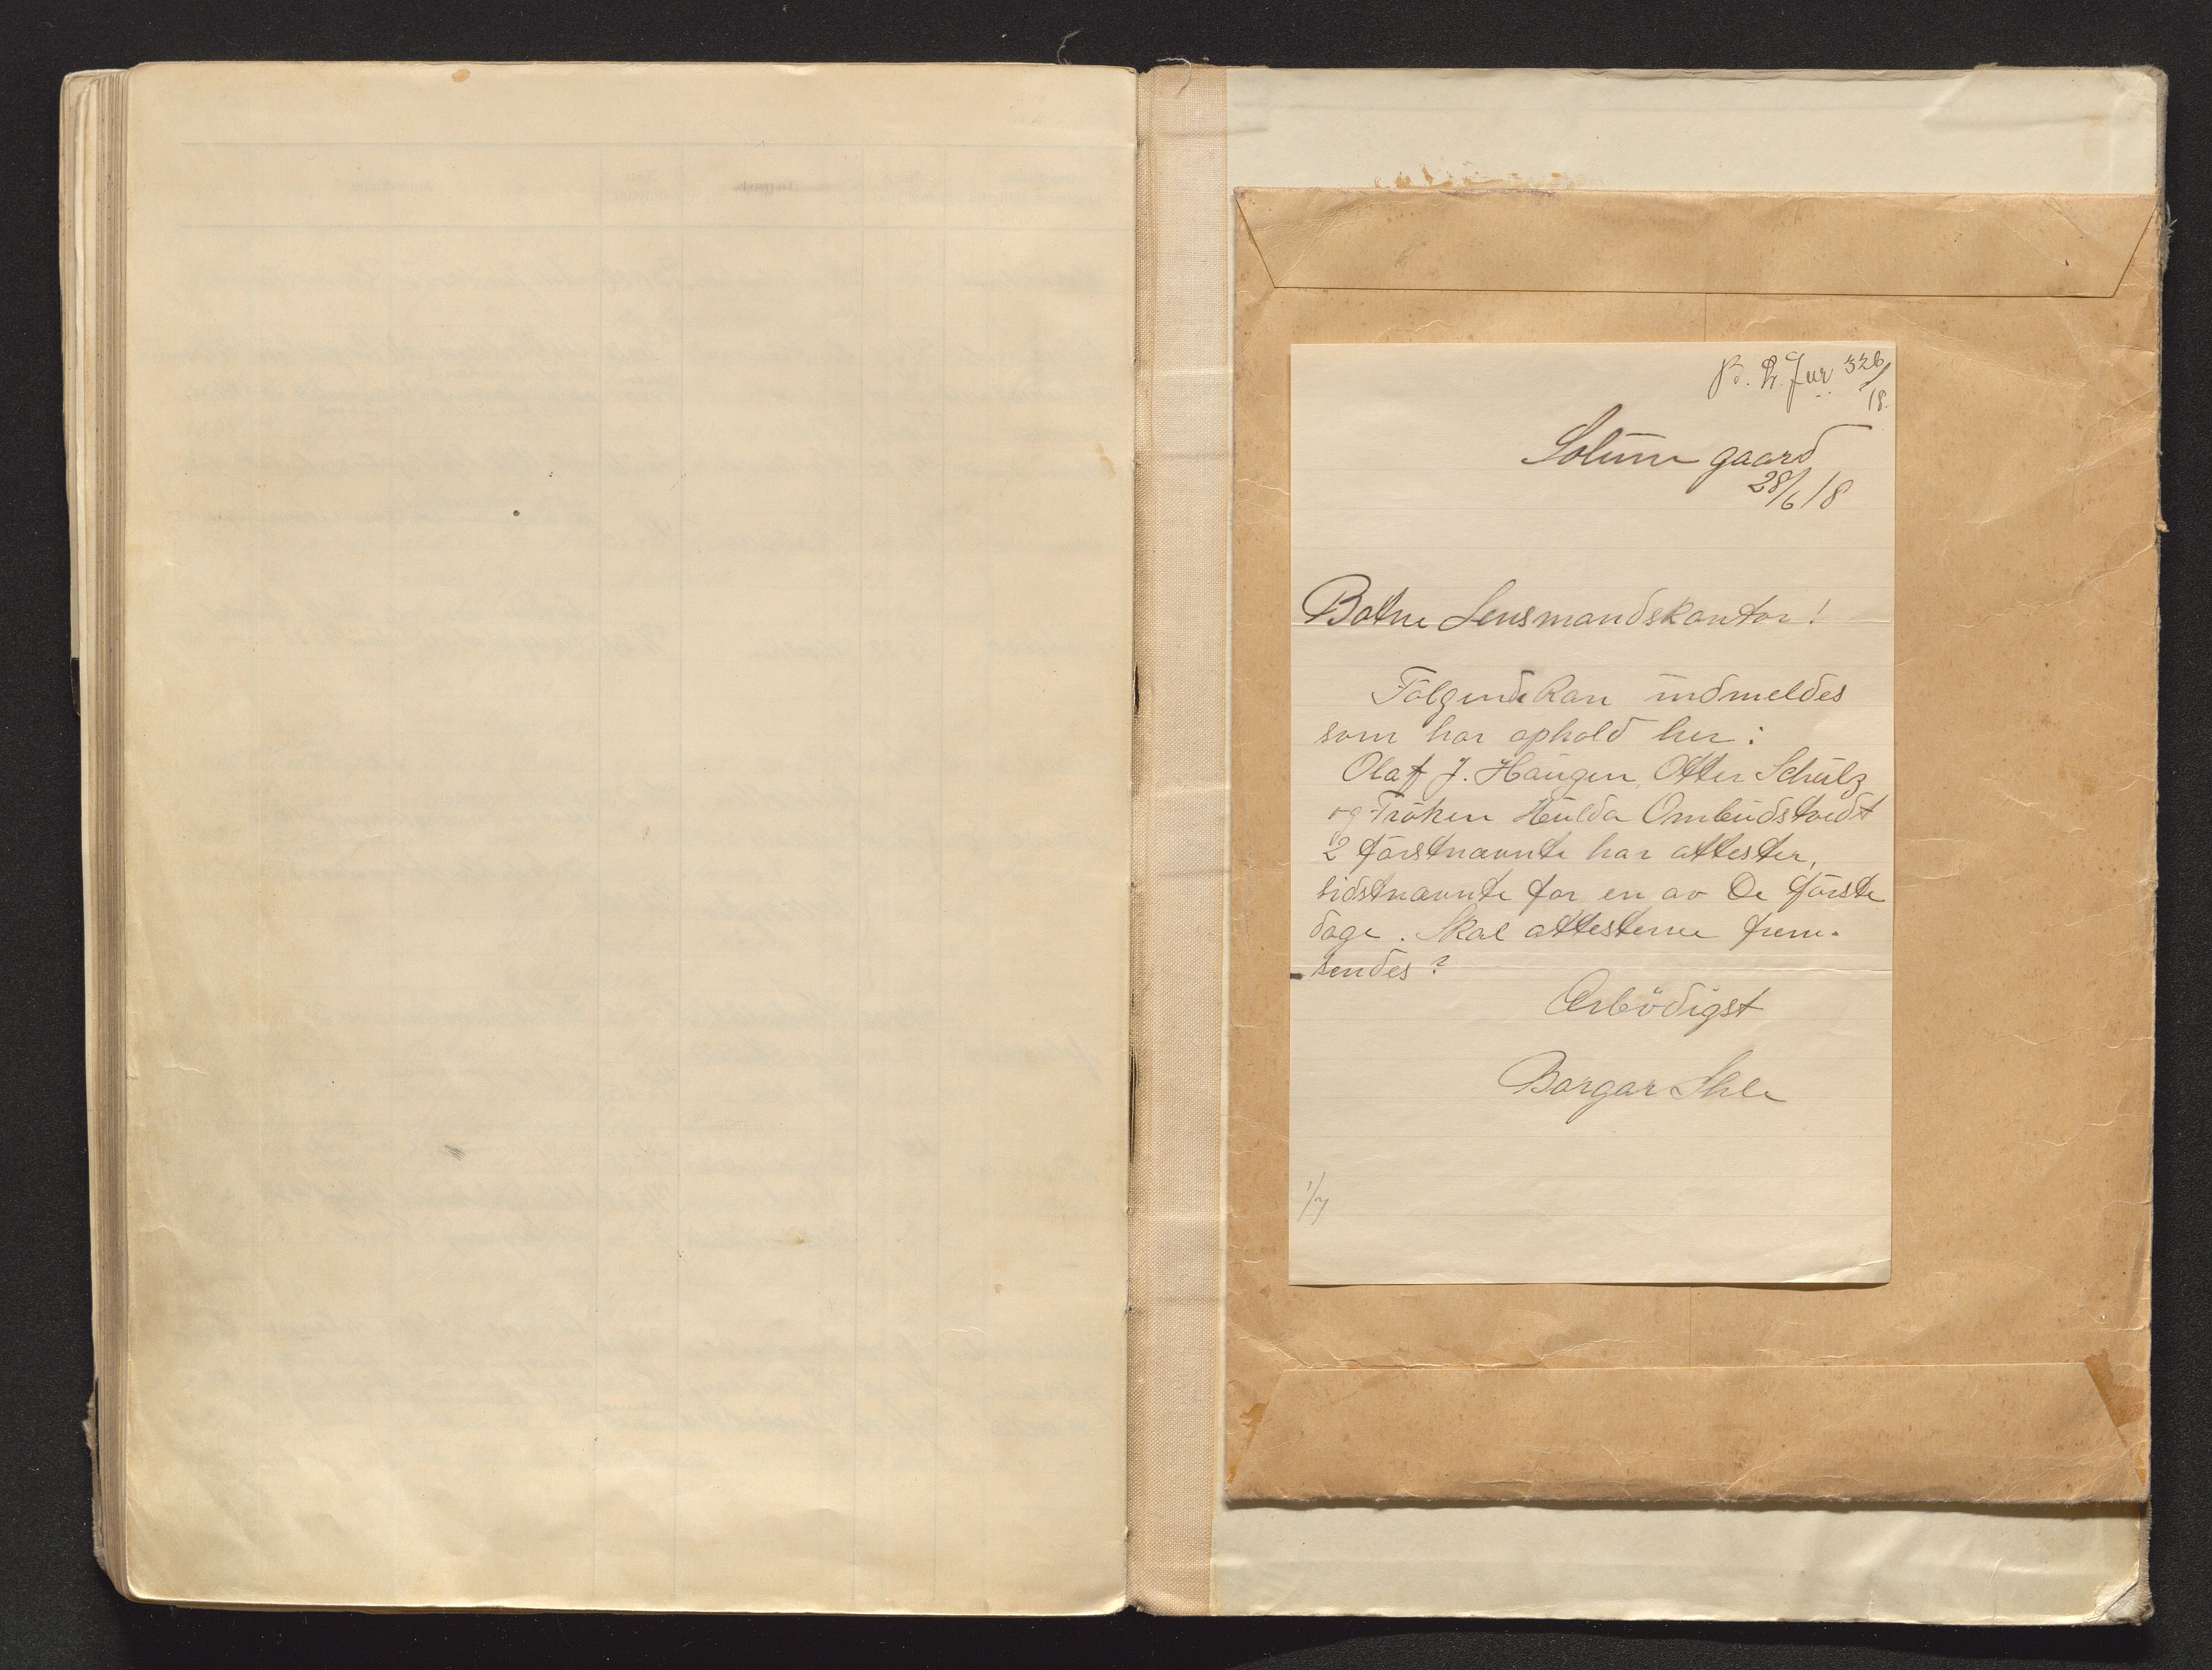 Jur 326/18.
Solum gaard
28/6 18
Botne Lensmandskontor!
Følgende kan indmeldes
som har ophold her:
Olaf J. Haugen, Otter Schulz
og Frøken Hulda Ombudstvedt
2 førstnævnte har attester,
sidstnævnte får en av De første
dage. Skal attesterne frem-
sendes?
Ærbödigst
Borgar Ihle
1/7